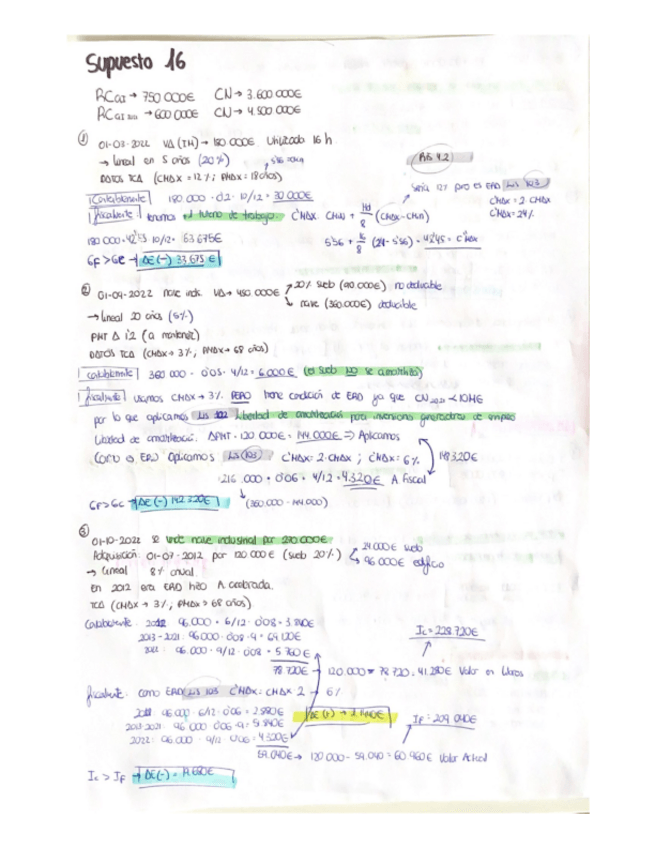 Supuesto 16
RCct → 750 000€ CN → 3.600 000€
→ 600 000€ CN → 4.500 000€
① 01-03-2022 VA (IM) → 180 000€ Utilizada 16 h.
→ lineal en 5 años (20%)
DATOS TCA (CMDX = 12%; PMDX = 18 años)
Contablemente 180 000 · 0'2 · 10/12 = 30 000€
Fiscalmente: tenemos el turno de trabajo. C'MDX = CMIN + Hd/8 (CMDX - CMIN)
Sería 12% pero es ERD LIS 103
CMDX = 2 · CMDX
C'MDX = 24%
10/12 = 63 675€
5'56 + 16/8 (24 - 5'56) = 42'45 = C'MDX
GF > GC → DE (-) 33.675 €
② 01-09-2022 nave ind. VA → 450 000€
20% suelo (90 000€) no deducible
nave (360.000€) deducible
→ lineal 20 años (5%)
PMT Δ 12 (a mantener)
DATOS TCA (CMDX → 3%, PMDX → 68 años)
Contablemente 360 000 · 0'05 · 4/12 = 6.000€ (el suelo NO se amortiza)
Fiscalmente usamos CMDX → 3%. PERO tiene condición de ERD ya que CN < 10M€
por lo que aplicamos LIS 102 libertad de amortización para inversiones generadoras de empleo
Libertad de amortización: ΔPMT · 120 000€ = 144.000€ ⇒ Aplicamos
como es ERD aplicamos LIS 103 C'MDX = 2 · CMDX ; C'MDX = 6%
148 320€
216 .000 · 0'06 · 4/12 = 4.320€ A fiscal
GF > GC → DE (-) 142 320€
(360 000 - 144.000)
③
01-10-2022 se vende nave industrial por 270 000€
Adquisición 01-07-2012 por 120 000€ (suelo 20%)
24 000€ suelo
96 000€ edificio
→ lineal 8% anual.
En 2012 era ERD hizo A acelerada.
TCA (CMDX → 3%, PMDX → 68 años)
Contablemente: 2012: 96.000 · 6/12 · 0'08 = 3.840€
2013-2021: 96000 · 0'08 · 9 = 69 120€
2022: 96.000 · 9/12 · 0'08 = 5 760€
78 720€ → 120.000 - 78 720 = 41 280€ Valor en libros
Ic = 228 720€
Fiscalmente: como ERD LIS 103 C'MDX = CMDX · 2 → 6%
96 000 · 6/12 · 0'06 = 2 880€
2013-2021: 96 000 · 0'06 · 9 = 51 840€
2022: 96 000 · 9/12 · 0'06 = 4320€
59.040€ → 120 000 - 59.040 = 60 960€ Valor fiscal
DE (+) → 1 440€
If = 209 040€
Ic > If → DE (-) = 19.680€